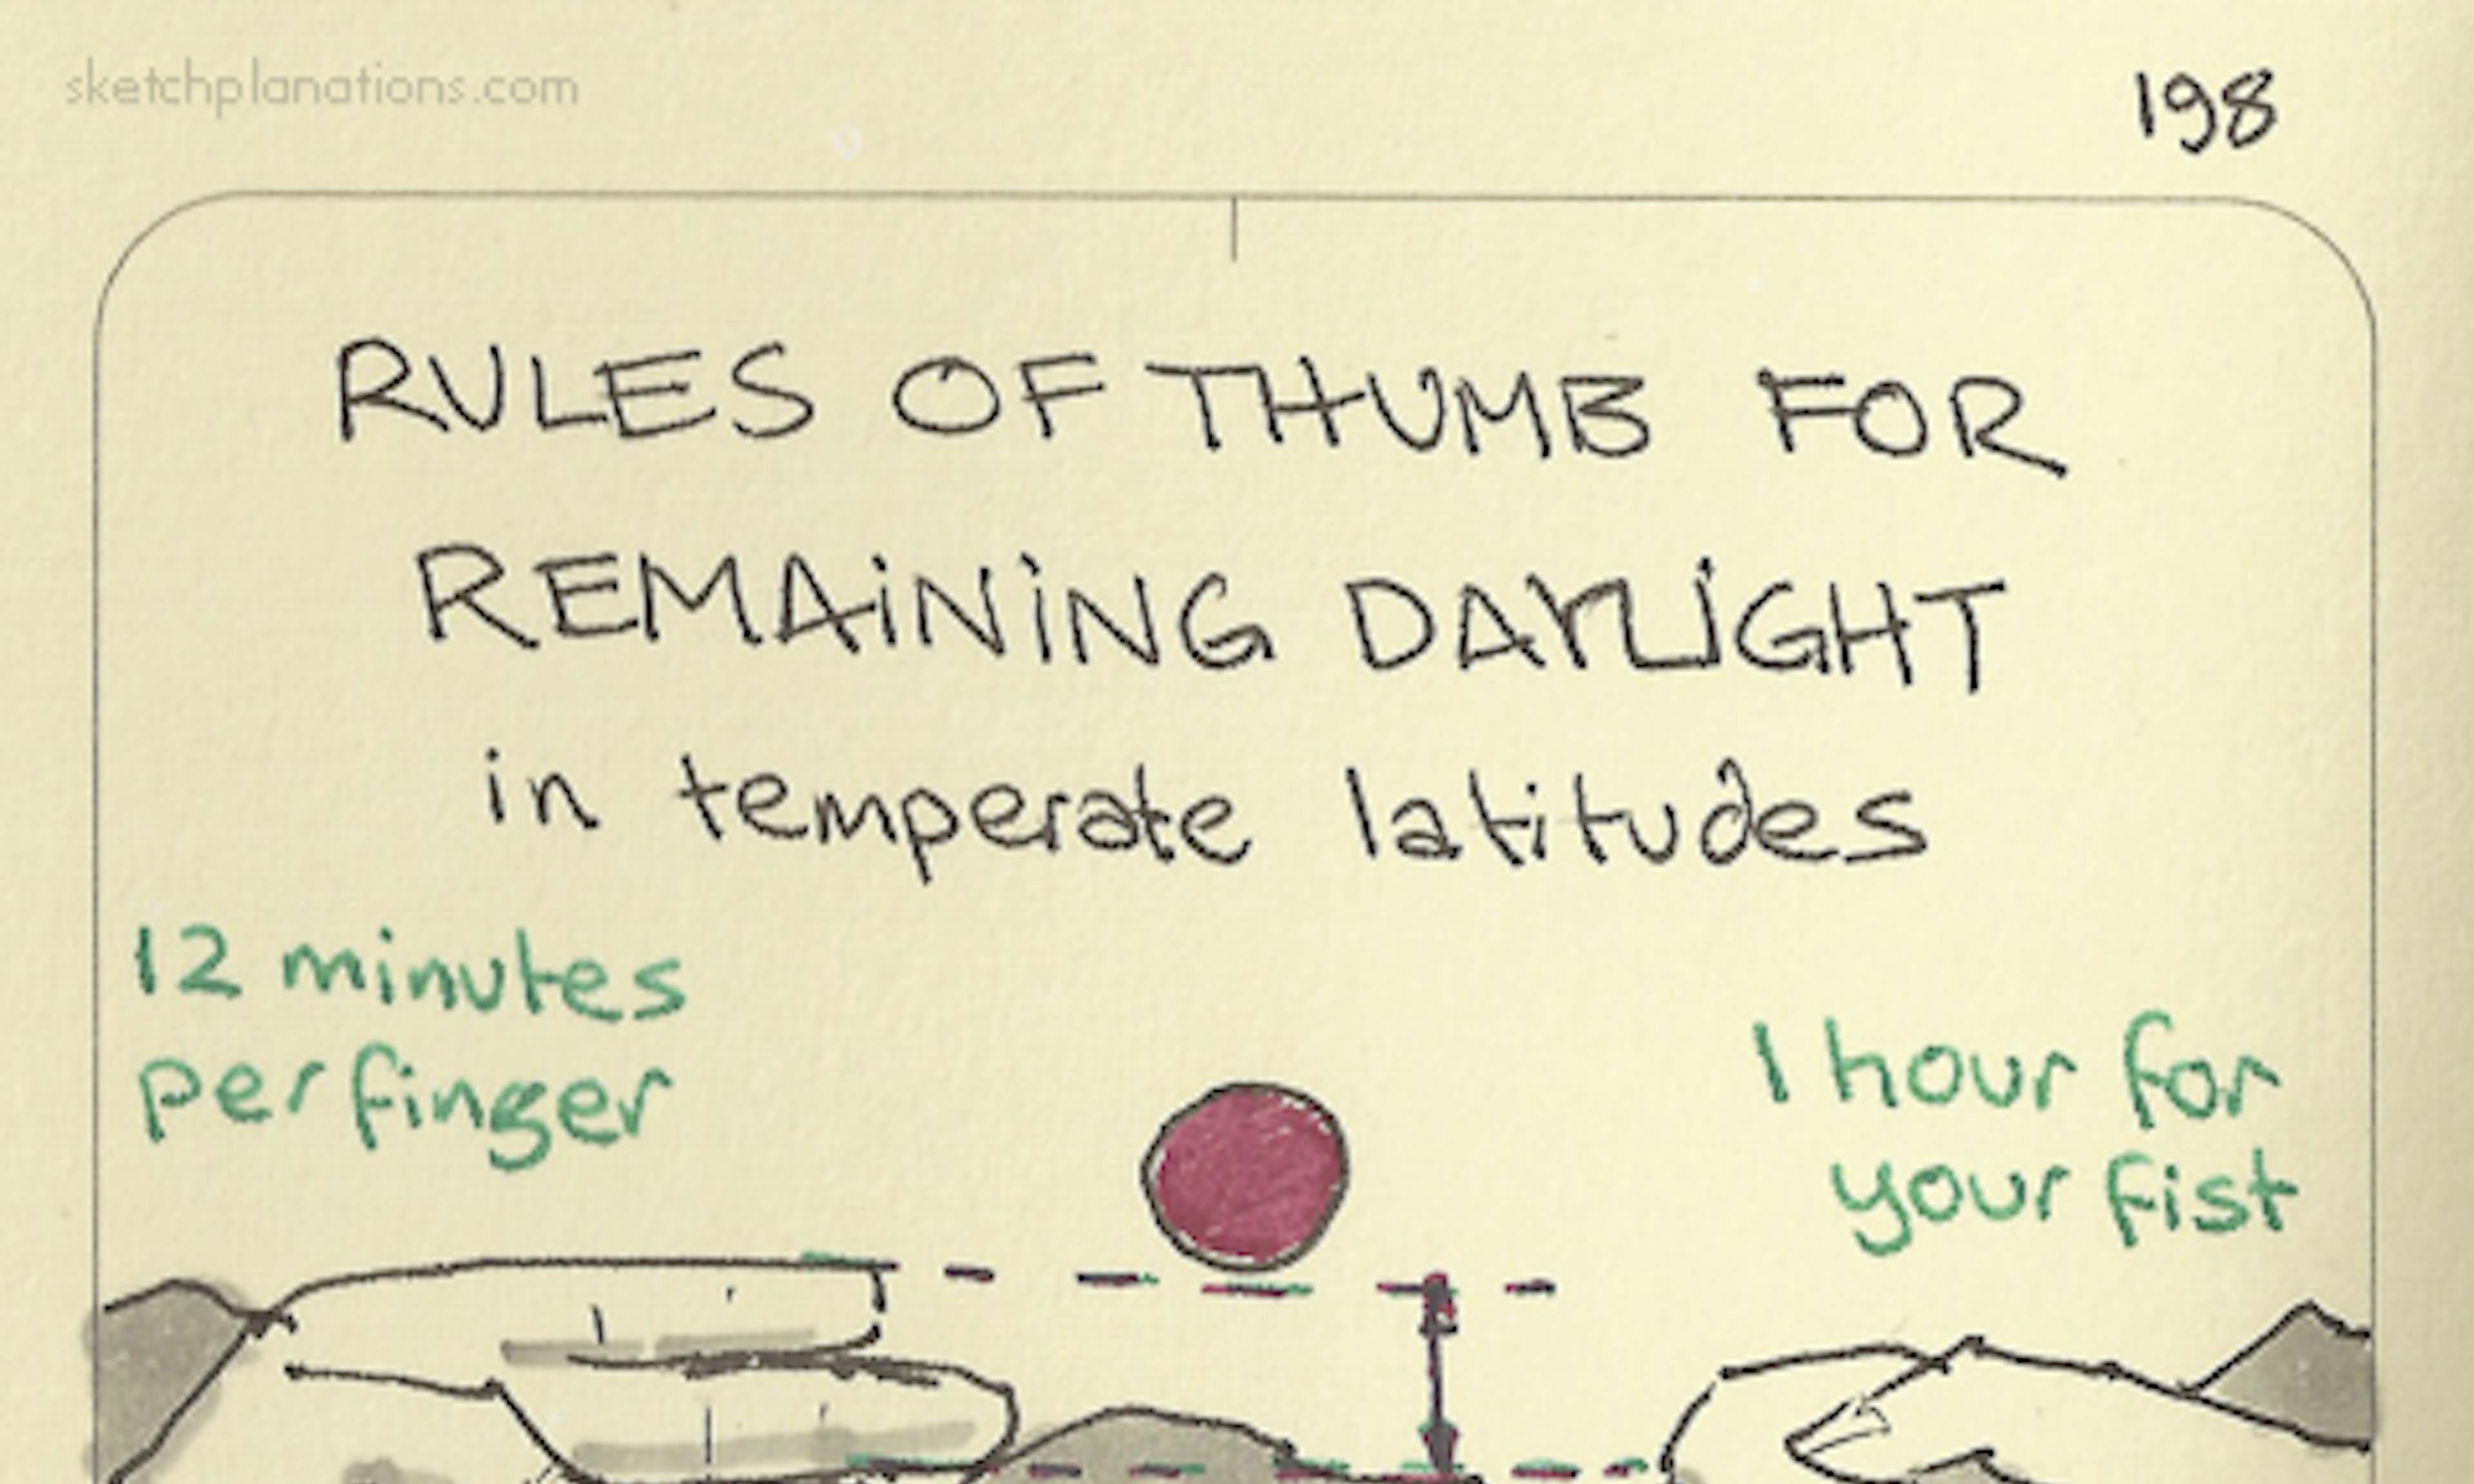 sketchplanations.com
198
RULES OF THUMB FOR
REMAiNiNG DAYLiGHT
in temperate latitudes
12 minutes
per finger
1 hour for
your fist